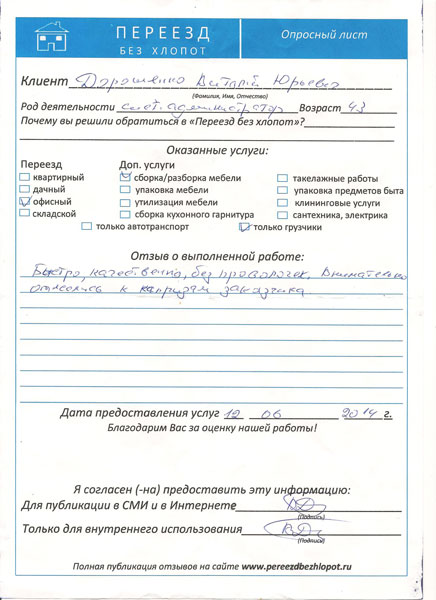 ПЕРЕЕЗД
БЕЗ ХЛОПОТ
Опросный лист
Клиент Дорошенко Виталий Юрьевич
(Фамилия, Имя, Отчество)
Род деятельности сист. администратор Возраст 43
Почему вы решили обратиться в «Переезд без хлопот»?
Оказанные услуги:
Переезд Доп. услуги
квартирный сборка/разборка мебели такелажные работы
дачный упаковка мебели упаковка предметов быта
офисный утилизация мебели клининговые услуги
складской сборка кухонного гарнитура сантехника, электрика
только автотранспорт только грузчики
Отзыв о выполненной работе:
Быстро, качественно, без проволочек. Внимательно
отнеслись к капризам заказчика
Дата предоставления услуг 12 06 2014 г.
Благодарим Вас за оценку нашей работы!
Я согласен (-на) предоставить эту информацию:
Для публикации в СМИ и в Интернете
(Подпись)
Только для внутреннего использования
(Подпись)
Полная публикация отзывов на сайте www.pereezdbezhlopot.ru